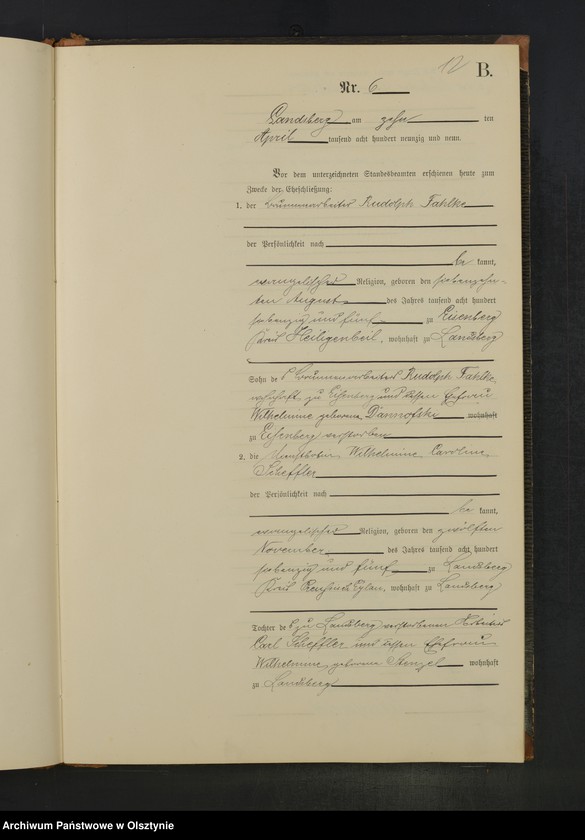 12 B.
Nr. 6
Landsberg am zehn ten
April tausend acht hundert neunzig und neun.
Vor dem unterzeichneten Standesbeamten erschienen heute zum
Zwecke der Eheschließung:
1. der Rudolph Fahlke
der Persönlichkeit nach
be kannt,
evangelischer Religion, geboren den siebenzehn-
ten August des Jahres tausend acht hundert
siebenzig und fünf zu Eisenberg
Kreis Heiligenbeil, wohnhaft zu Landsberg
Sohn des Rudolph Fahlke,
wohnhaft zu Eisenberg und dessen Ehefrau
Wilhelmine geborene wohnhaft
zu Eisenberg verstorben
2. die Wilhelmine Caroline
Scheffler
der Persönlichkeit nach
be kannt,
evangelischer Religion, geboren den zwölften
November des Jahres tausend acht hundert
siebenzig und fünf zu Landsberg
Kreis Preußisch Eylau, wohnhaft zu Landsberg
Tochter des zu Landsberg verstorbenen Arbeiters
Carl Scheffler und dessen Ehefrau
Wilhelmine, geborene Stenzel wohnhaft
zu Landsberg
Archiwum Państwowe w Olsztynie